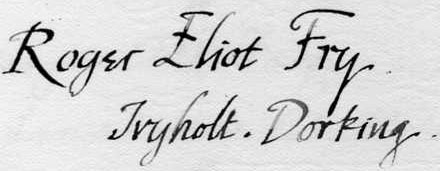 Roger Eliot Fry.
Ivyholt. Dorking.